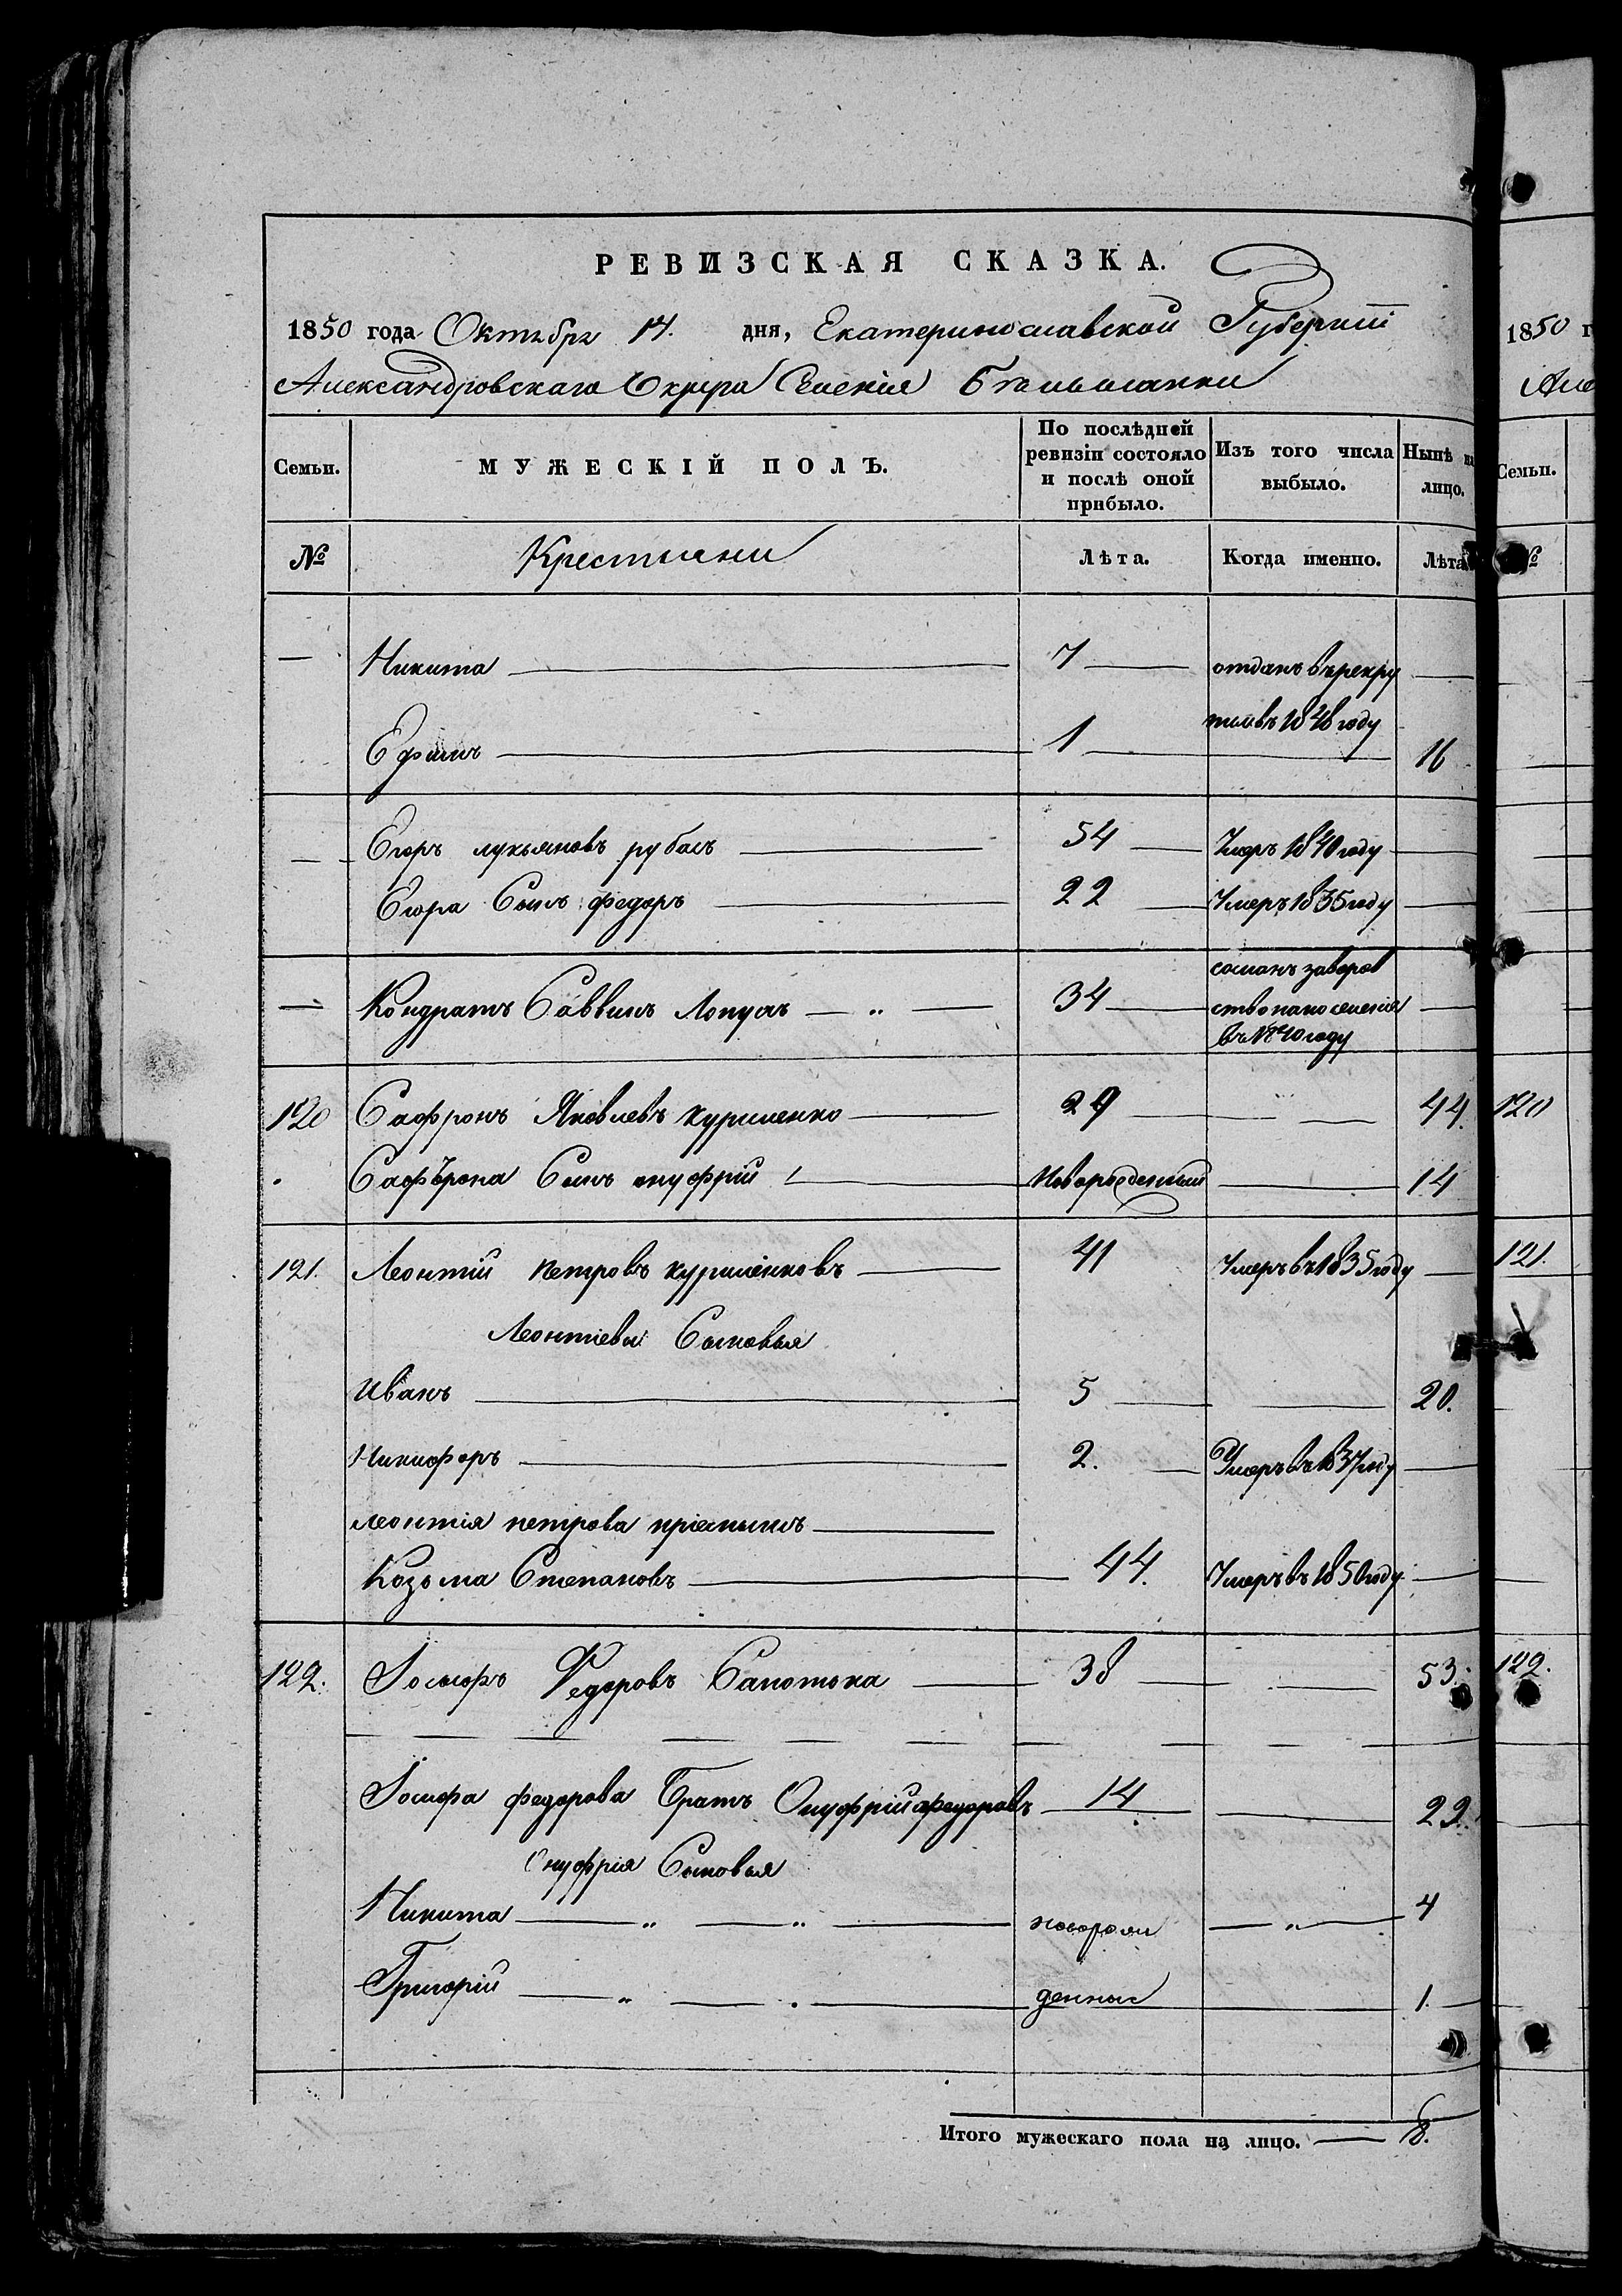 РЕВИЗСКАЯ СКАЗКА.
1850 года Октября 14. дня, Екатеринославской Губерніи
Александровскаго Округа Селенія Бѣльманки
Семьи. МУЖЕСКІЙ ПОЛЪ. По послѣдней ревизіи состояло и послѣ оной прибыло. Изъ того числа выбыло. Нынѣ на лицо.
№ Крестьяни Лѣта. Когда именно. Лѣта
— Никита — 7 — отданъ въ рекру —
ты въ 1848 году
Ефимъ — 1 — 16
— Егоръ лукьяновъ рубанъ — 54 — Умеръ 1840 году —
Егора Сынъ федоръ — 22 — Умеръ 1835 году —
— Кондратъ Саввинъ Лопухъ — „ — 34 — сосланъ за воров
ство на поселеніе —
въ 1840 году
120 Сафронъ Яковлевъ куриленко — 29 — 44.
Сафрона Сынъ онуфрій — Новорожденный — 14
121. Леонтій петровъ куриленковъ — 41 Умеръ въ 1835 году —
Леонтіевы Сыновья
Иванъ — 5 — 20.
Никифоръ — 2. — Умеръ въ 1837 году —
леонтія петрова пріемышъ —
Козьма Степановъ — 44. Умеръ въ 1850 году —
122. Іосифъ Федоровъ Сапотока — 38 — 53.
Іосифа федорова Братъ Онуфрій федоровъ — 14 — 29.
Онуфрія Сыновья
Никита — „ — „ — новорож — „ — 4
Григорій — „ — . — денные — 1. —
Итого мужескаго пола на лицо. — 8.
1850 г
Але
Семьи.
№
120
121.
122.